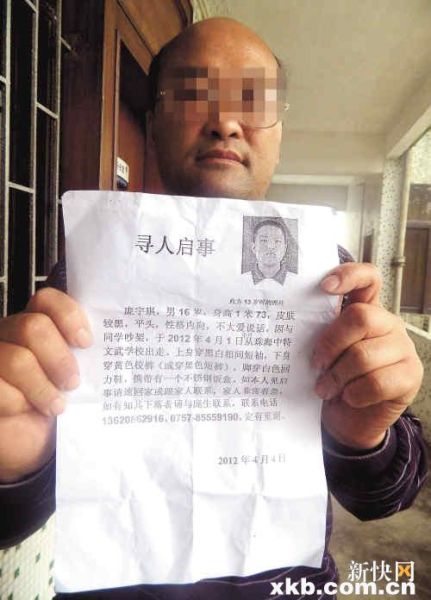 寻人启事
此为13岁时的照片
庞宇琪，男16岁，身高1米73，皮肤
较黑，平头，性格内向，不太爱说话，因与
同学吵架，于2012年4月1日从珠海中特
文武学校出走，上身穿黑白相间短袖，下身
穿黄色校裤（或穿黑色短裤），脚穿白色回
力鞋，携带有一个不锈钢饭盒。如本人见启
事请速回家或跟家人联系，家人
如有知其下落者请与庞生联系，联系电话
13520862916，0757-85559190，定有重谢。
2012年4月4日
新快网
xkb.com.cn